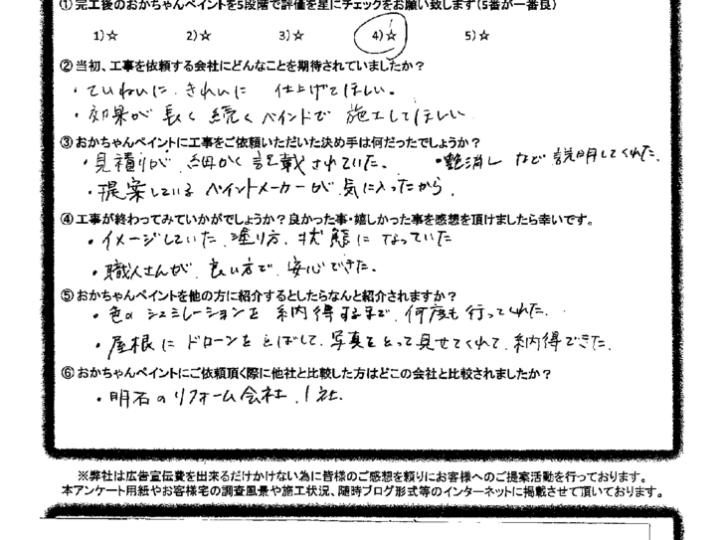 ① 完工後のおかちゃんペイントを5段階で評価を星にチェックをお願い致します(5番が一番良)
1)☆ 2)☆ 3)☆ 4)☆ 5)☆
② 当初、工事を依頼する会社にどんなことを期待されていましたか？
・ていねいに きれいに 仕上げてほしい。
・効果が 長く 続く ペイントで 施工してほしい
③ おかちゃんペイントに工事をご依頼いただいた決め手は何だったでしょうか？
・見積りが 細かく 記載されていた。 ・艶消し など 説明してくれた.
・提案している ペイントメーカーが 気に入ったから.
④ 工事が終わってみていかがでしょうか？良かった事・嬉しかった事を感想を頂けましたら幸いです。
・イメージしていた 塗り方、状態に なっていた
・職人さんが、良い方で、安心できた.
⑤ おかちゃんペイントを他の方に紹介するとしたらなんと紹介されますか？
・色の シュミレーションを 納得するまで、何度も 行ってくれた.
・屋根に ドローンを とばして、写真をとって 見せてくれて、納得できた.
⑥ おかちゃんペイントにご依頼頂く際に他社と比較した方はどこの会社と比較されましたか？
・明石の リフォーム会社、1社.
※弊社は広告宣伝費を出来るだけかけない為に皆様のご感想を頼りにお客様へのご提案活動を行っております。
本アンケート用紙やお客様宅の調査風景や施工状況、随時ブログ形式等のインターネットに掲載させて頂いております。